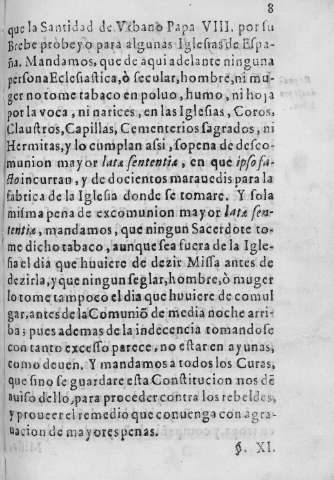 8
que la Santidad de Vrbano Papa VIII. por su
Brebe probeyo para algunas Iglesias de Espa-
ña. Mandamos, que de aqui adelante ninguna
persona Eclesiastica, ò secular, hombre, ni mu-
ger no tome tabaco en poluo, humo, ni hoja
por la voca, ni narices, en las Iglesias, Coros,
Claustros, Capillas, Cementerios sagrados, ni
Hermitas, y lo cumplan assi, sopena de desco-
munion mayor latæ sententiæ, en que ipso fa-
cto incurran, y de docientos marauedis para la
fabrica de la Iglesia donde se tomare. Y sola
misma pena de excomunion mayor latæ sen-
tentiæ, mandamos, que ningun Sacerdote to-
me dicho tabaco, aunque sea fuera de la Igle-
sia el dia que huuiere de dezir Missa antes de
dezirla, y que ningun seglar, hombre, ò muger
lo tome tampoco el dia que huuiere de comul
gar, antes de la Comuniō de media noche arri-
ba; pues ademas de la indecencia tomandose
con tanto excesso parece, no estar en ayunas,
como deuen. Y mandamos à todos los Curas,
que sino se guardare esta Constitucion nos dē
auiso dello, para proceder contra los rebeldes,
y proueer el remedio que conuenga con agra-
uacion de mayores penas.
§. XI.